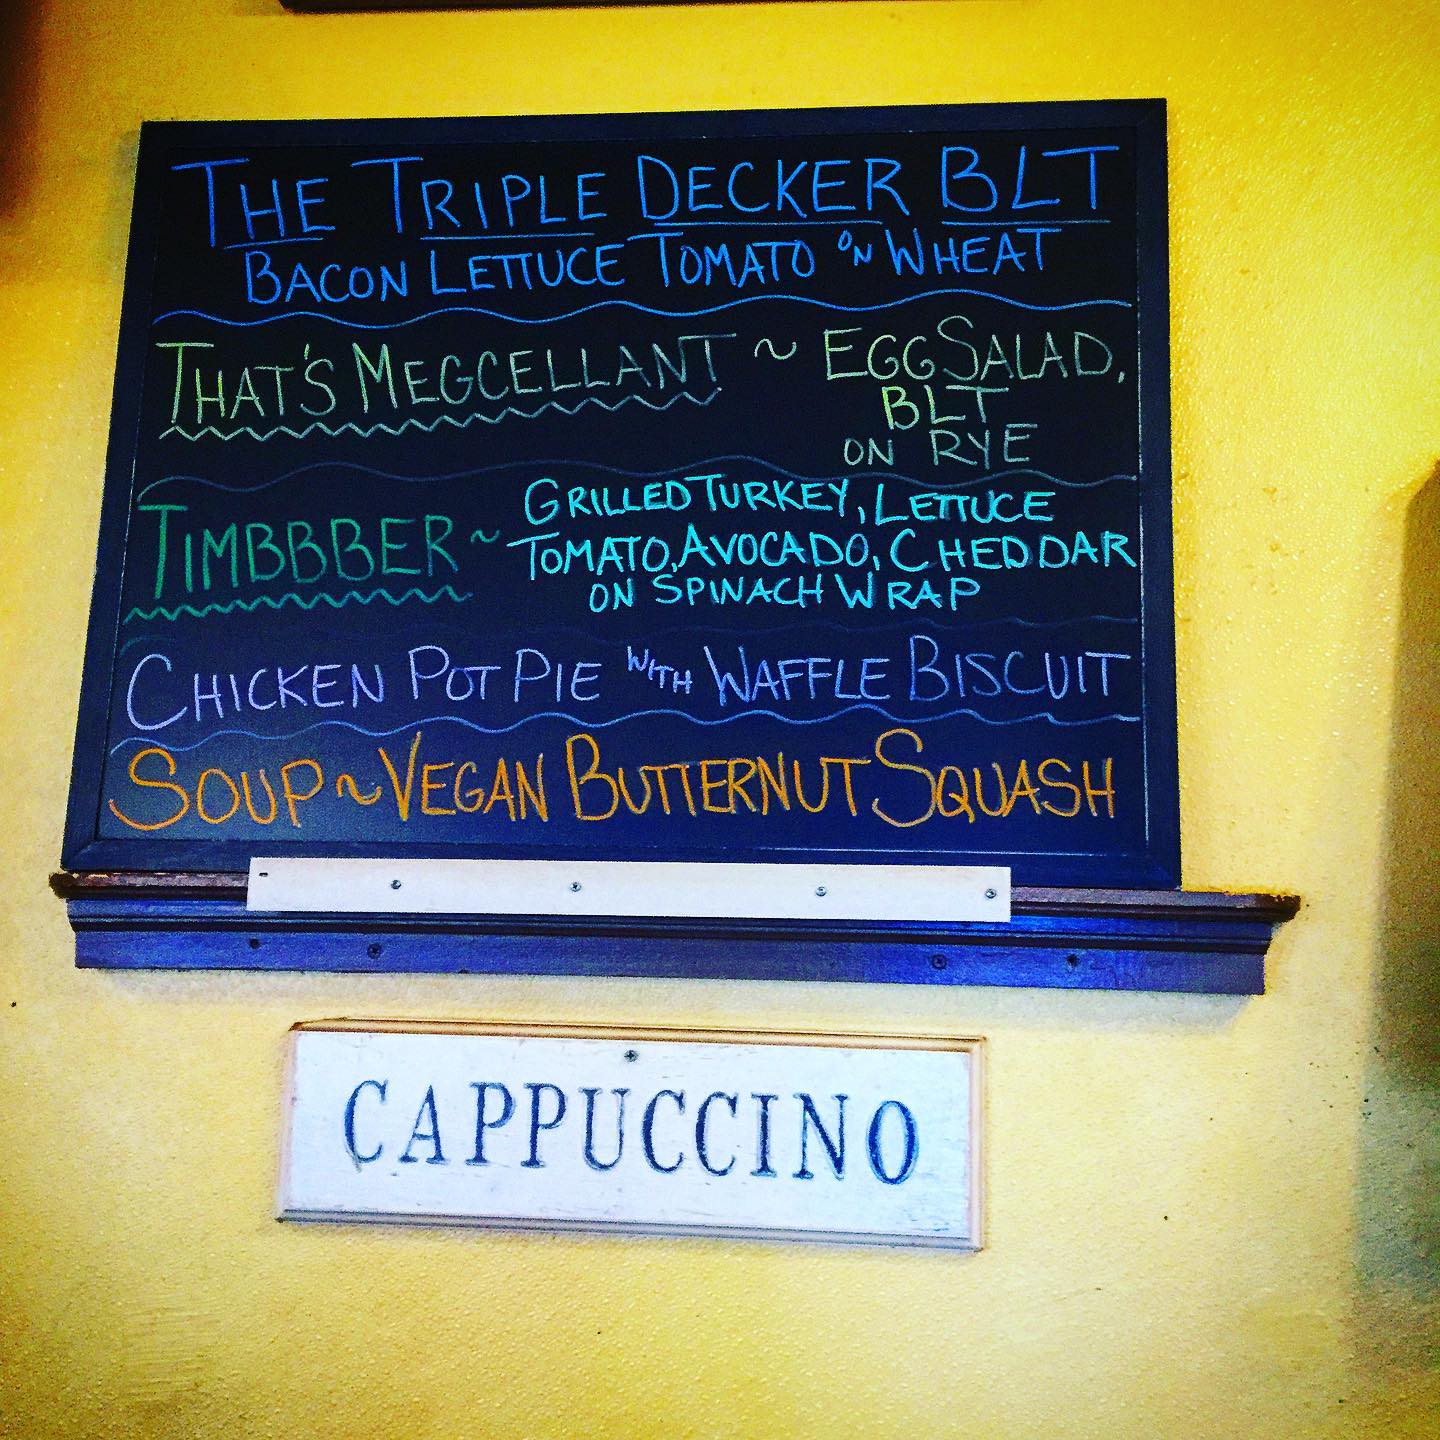 THE TRIPLE DECKER BLT
BACON LETTUCE TOMATO ON WHEAT
THAT'S MEGCELLANT ~ EGG SALAD,
BLT
ON RYE
TIMBBBER ~ GRILLED TURKEY, LETTUCE
TOMATO, AVOCADO, CHEDDAR
ON SPINACH WRAP
CHICKEN POT PIE WITH WAFFLE BISCUIT
SOUP ~ VEGAN BUTTERNUT SQUASH
CAPPUCCINO